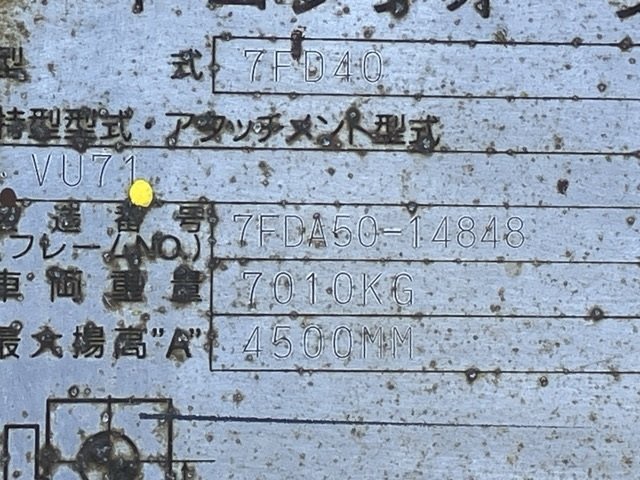 型 式 7FD40
特型型式・アタッチメント型式
VU71
製造番号 7FDA50-14848
(フレームNO.)
車両重量 7010KG
最大揚高"A" 4500MM